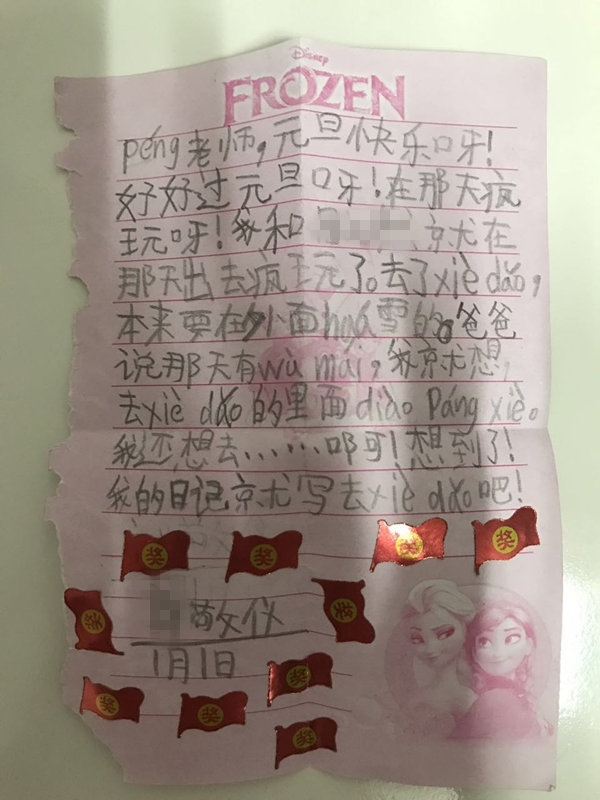 Disney
FROZEN
péng老师,元旦快乐呀!
好好过元旦呀!在那天疯
玩呀!我和 就在
那天出去疯玩了。去了xiè dǎo,
本来要在外面huá雪的。爸爸
说那天有wù mái,我就想,
去xiè dǎo的里面diào páng xiè。
我还想去……啊!想到了!
我的日记就写去xiè dǎo吧!
奖 奖 奖 奖
奖 敬仪 奖
1月1日 奖
奖 奖
奖